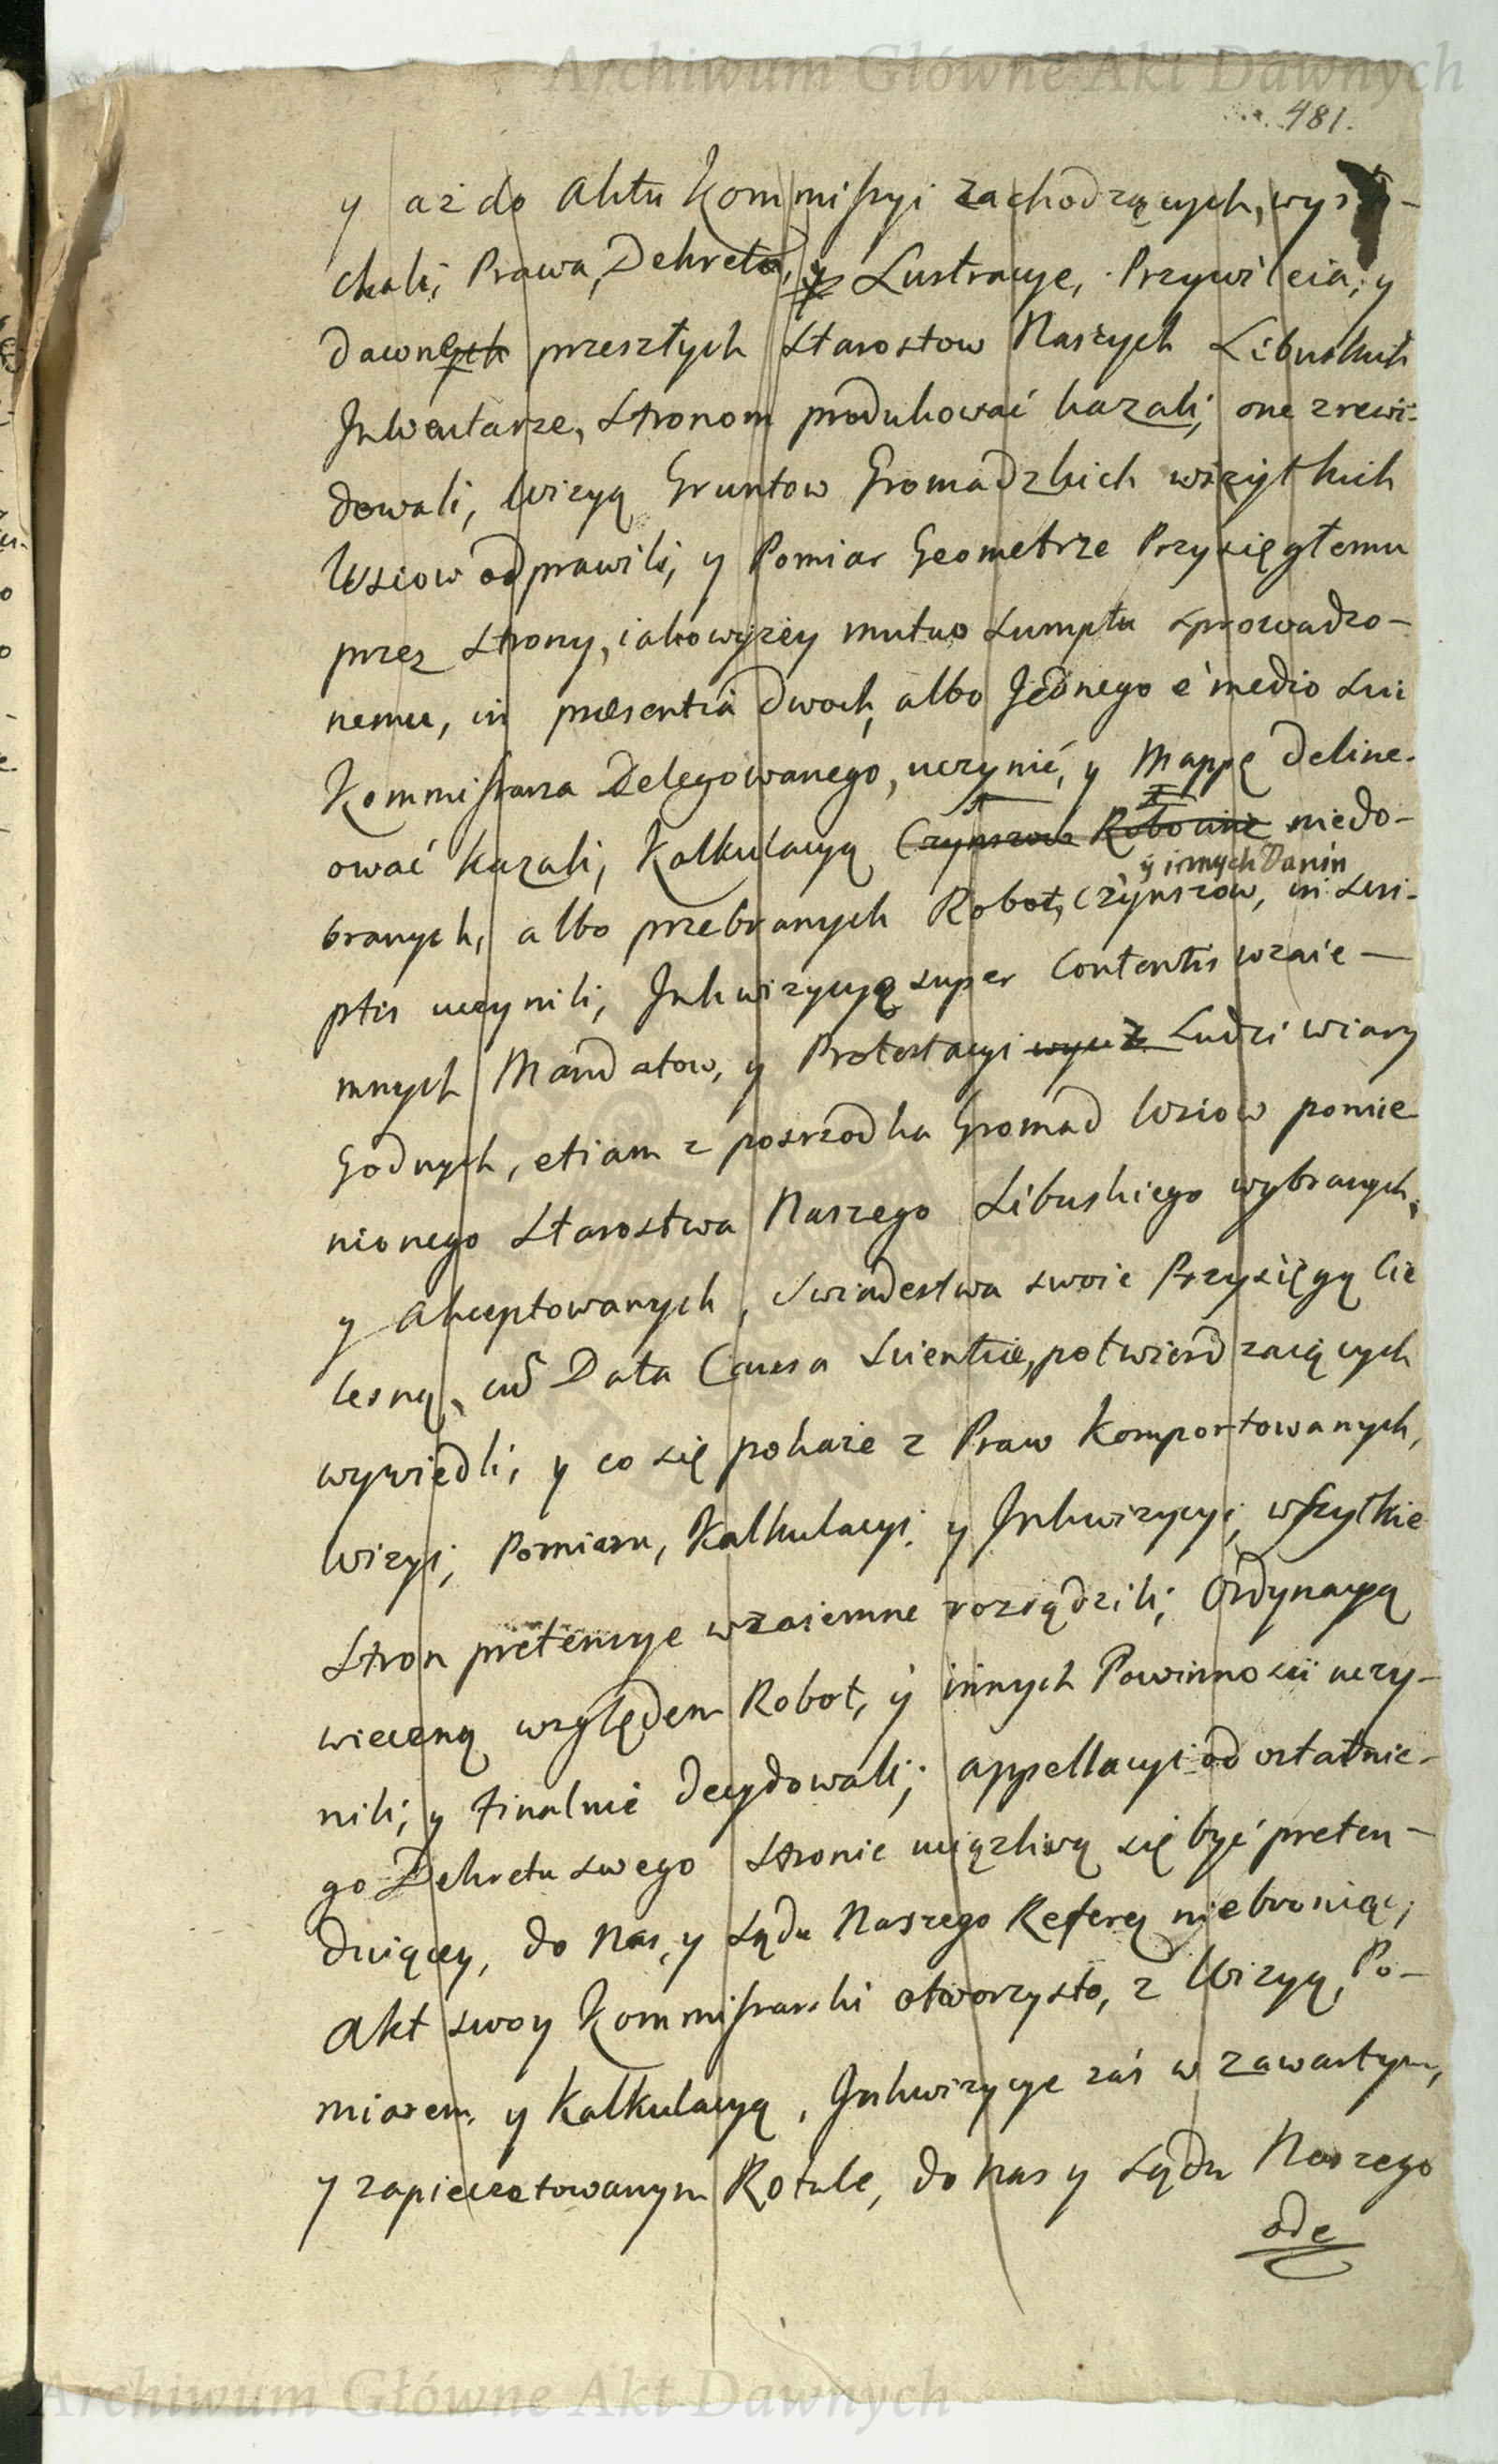 Archiwum Główne Akt Dawnych
481.
y aż do Aktu Kommissyi zachodzących, wysłu-
chali, Prawa, Dekreta, y Lustracye, Przywileia, y
dawnych przeszłych Starostow Naszych Libuskich
Inwentarze, Stronom produkować kazali, one zrewi-
dowali, Wizyą Gruntow Gromadzkich wszytkich
Wsiow odprawili, y Pomiar Geometrze Przysięgłemu
przez Strony, iako wyżey mutuo Sumptu sprowadzo-
nemu, in præsentiâ dwoch, albo Jednego è medio Sui
Kommissarza Delegowanego, uczynić, y Mappę deline-
ować kazali, Kalkulacyą Czynszow Robocizne niedo-
y innych Danin
branych, albo przebranych Robot, Czynszow, in Scri-
ptis uczynili, Inkwizycyą super Contentis wzaie-
mnych Mandatow, y Protestacyi Ludzi wiary
Godnych, etiam z posrzodka Gromad Wsiow pomie-
nionego Starostwa Naszego Libuskiego wybranych,
y Akceptowanych, Swiadectwa swoie Przysięgą Cie
lesną, cum Data Causa Scientiæ, potwierdzaiących
wywiedli, y co się pokaże z Praw komportowanych,
Wizyi, Pomiaru, Kalkulacyi, y Inkwizycyi, wszytkie
Stron pretensye wzaiemne rozsądzili, Ordynacyą
wieczną względem Robot, y innych Powinnosci uczy-
nili, y finalnie decydowali; appellacyi od ostatnie-
go Dekretu swego Stronie uciążliwą się być preten-
duiącey, do Nas, y Sądu Naszego Referen. niebroniąc,
Akt swoy Kommissarski otworzysto, z Wizyą, Po-
miarem, y Kalkulacyą, Inkwizycye zaś w zawartym,
y zapieczetowanym Rotule, do Nas y Sądu Naszego
ode
Archiwum Główne Akt Dawnych